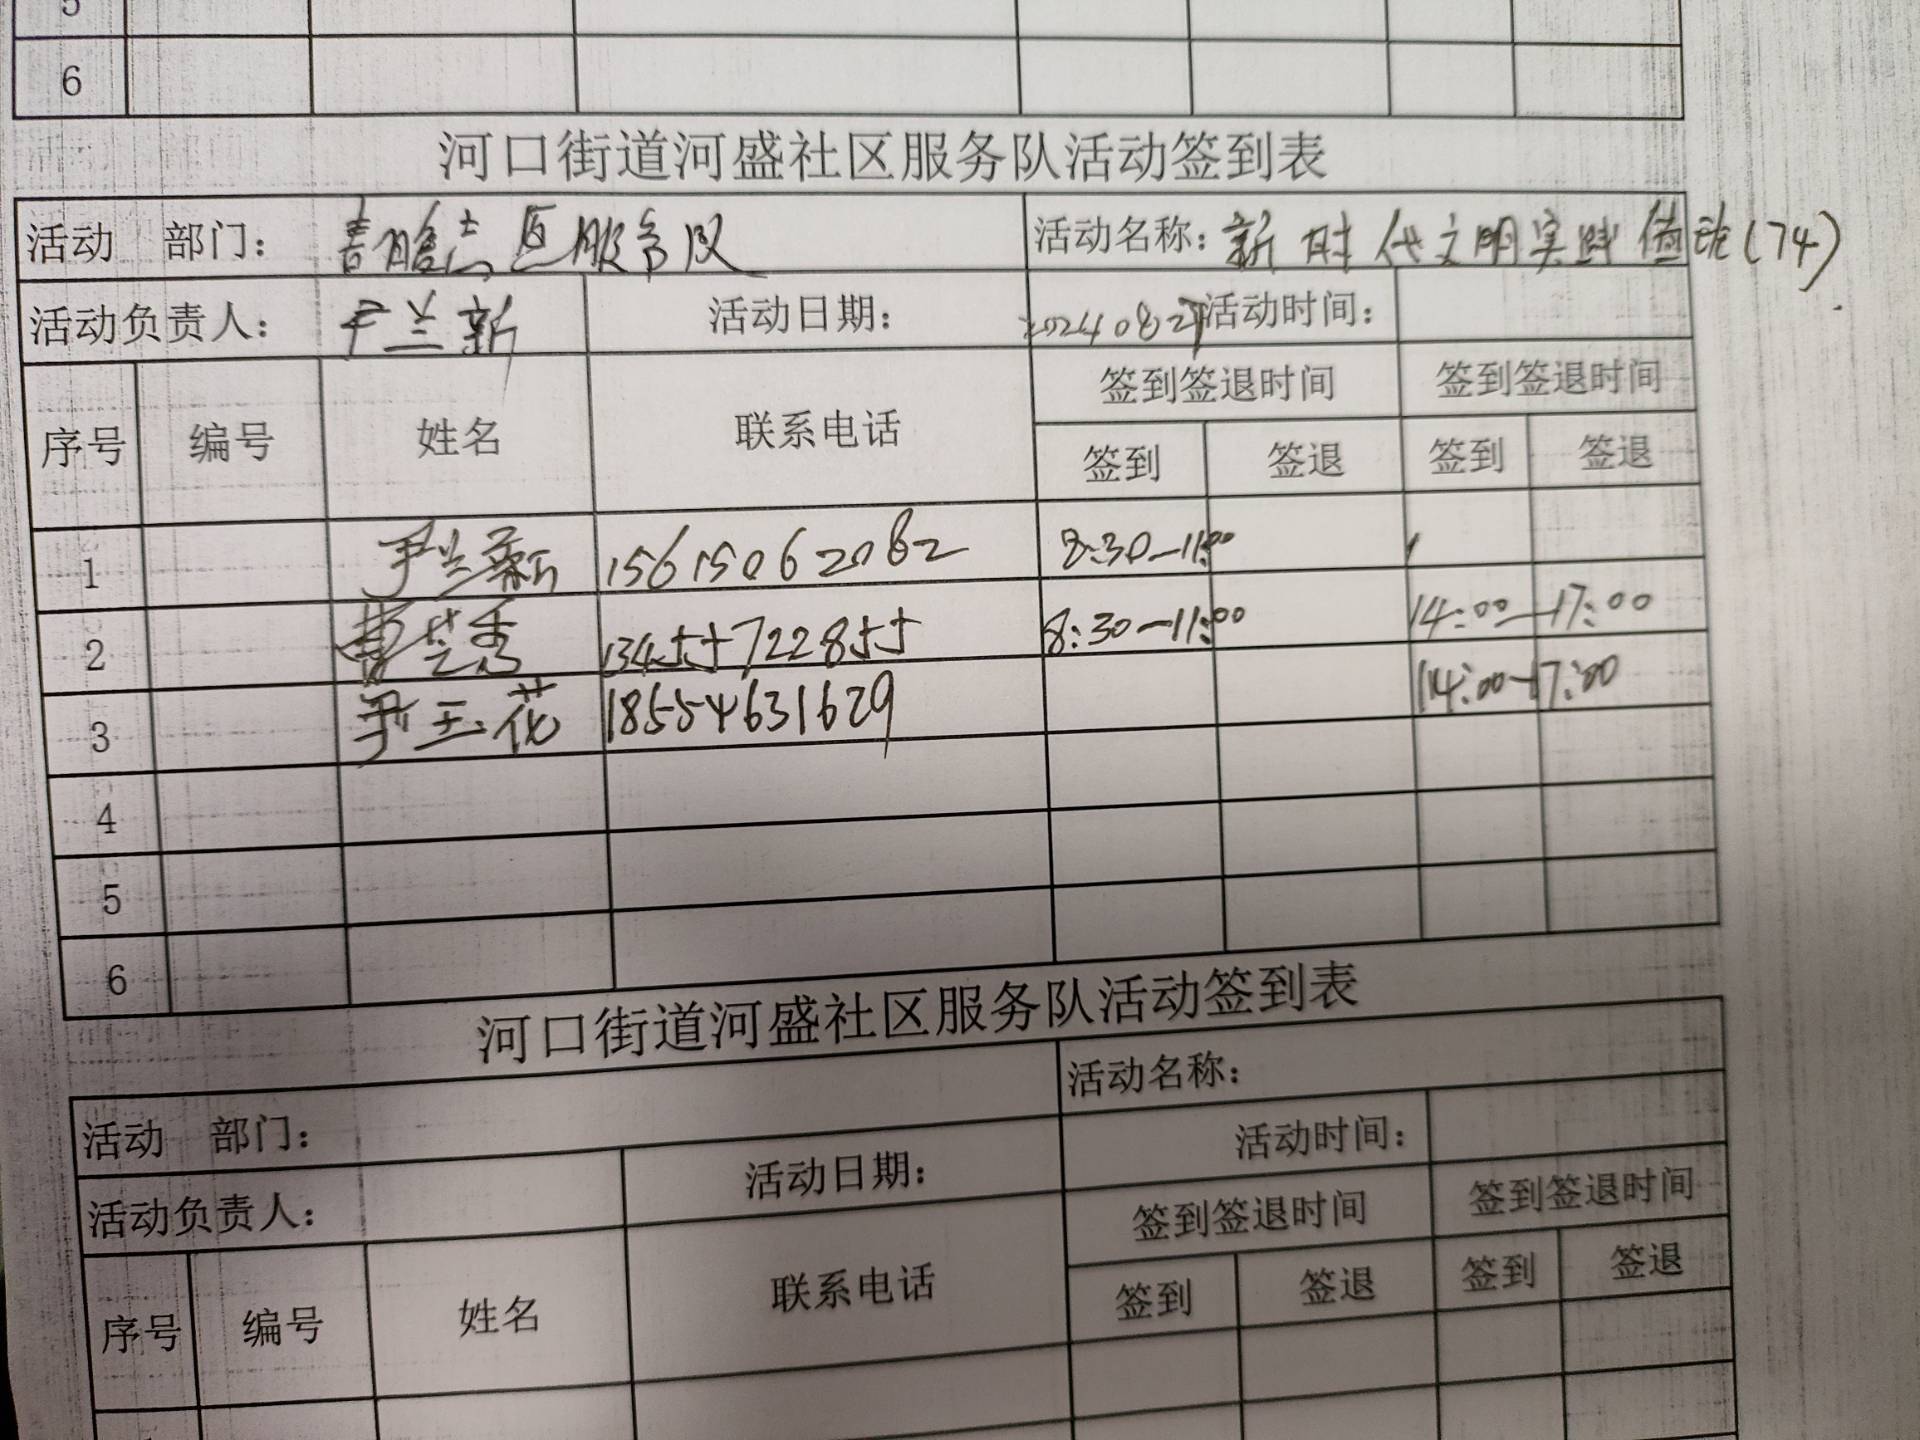 5
6
河口街道河盛社区服务队活动签到表
活动 部门： 区服务队 活动名称：新时代文明实践值班(74)
活动负责人： 尹兰新 活动日期： 20240827 活动时间：
序号 编号 姓名 联系电话 签到签退时间 签到签退时间
签到 签退 签到 签退
1 尹兰新 15615062062 8:30-11:00
2 芸秀 13455722855 8:30-11:00 14:00-17:00
3 尹玉花 18554631629 14:00-17:00
4
5
6
河口街道河盛社区服务队活动签到表
活动 部门： 活动名称：
活动负责人： 活动日期： 活动时间：
序号 编号 姓名 联系电话 签到签退时间 签到签退时间
签到 签退 签到 签退